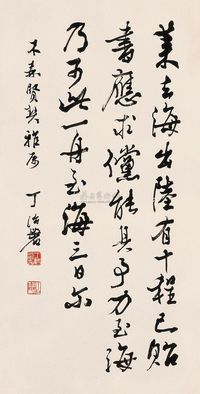 萊去海出陸有十程已貽
書應求儻能具事力至海
乃可此一舟至海三日尔
木森賢契雅屬
丁治磐